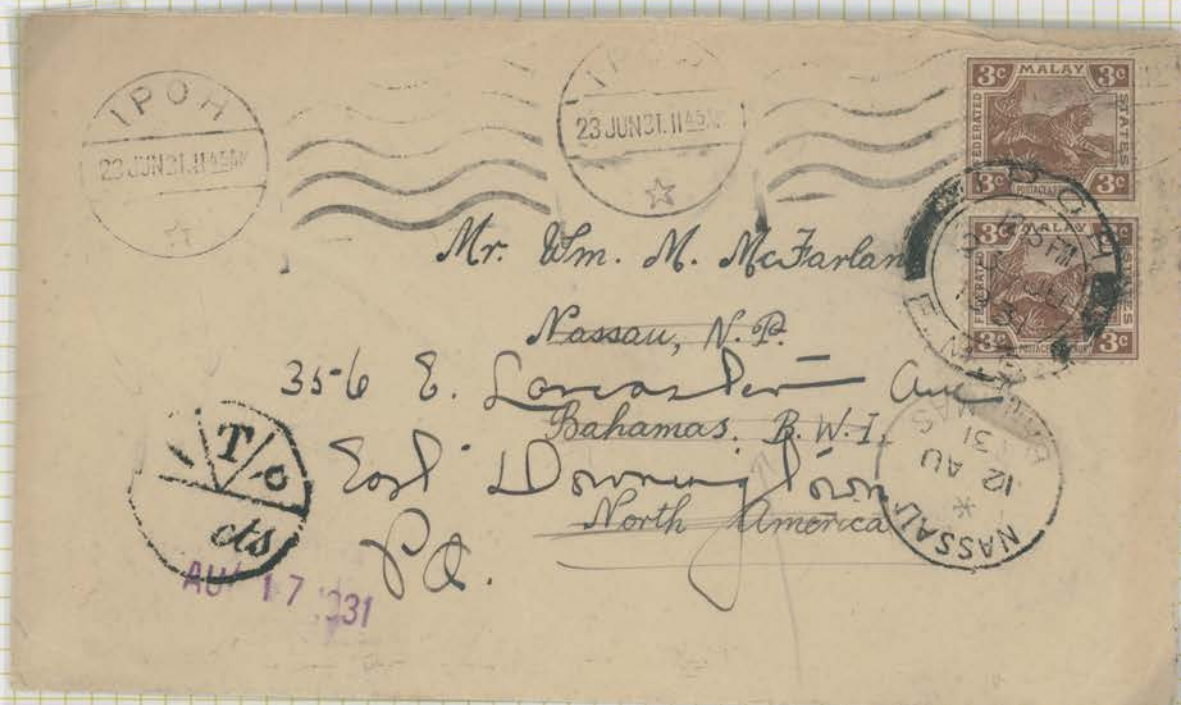 IPOH
23 JUN 31. 11 45 AM
23 JUN 31. 11 45 AM
3c MALAY 3c
FEDERATED STATES
3c 3c
3c MALAY 3c
FEDERATED STATES
3c 3c
Mr. Wm. M. McFarlan
Nassau, N.P.
356 E. Lancaster Ave
Bahamas. B.W.I.
East Downingtown
North America
Pa.
T/o
cts
AU 17 1931
NASSAU
12 AU
31